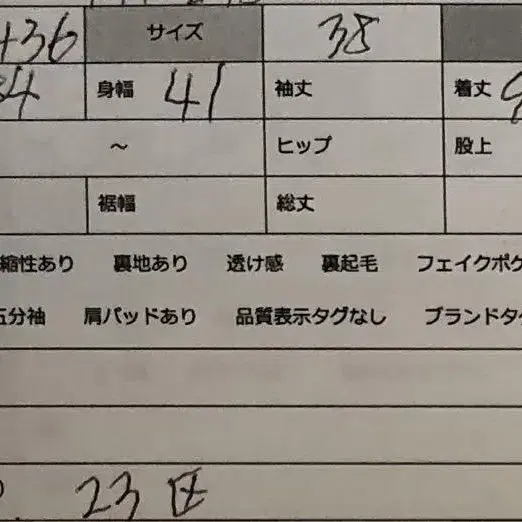 +36 サイズ 38
34 身幅 41 袖丈 着丈
～ ヒップ 股上
裾幅 総丈
縮性あり 裏地あり 透け感 裏起毛 フェイクポケ
五分袖 肩パッドあり 品質表示タグなし ブランドタ
23区